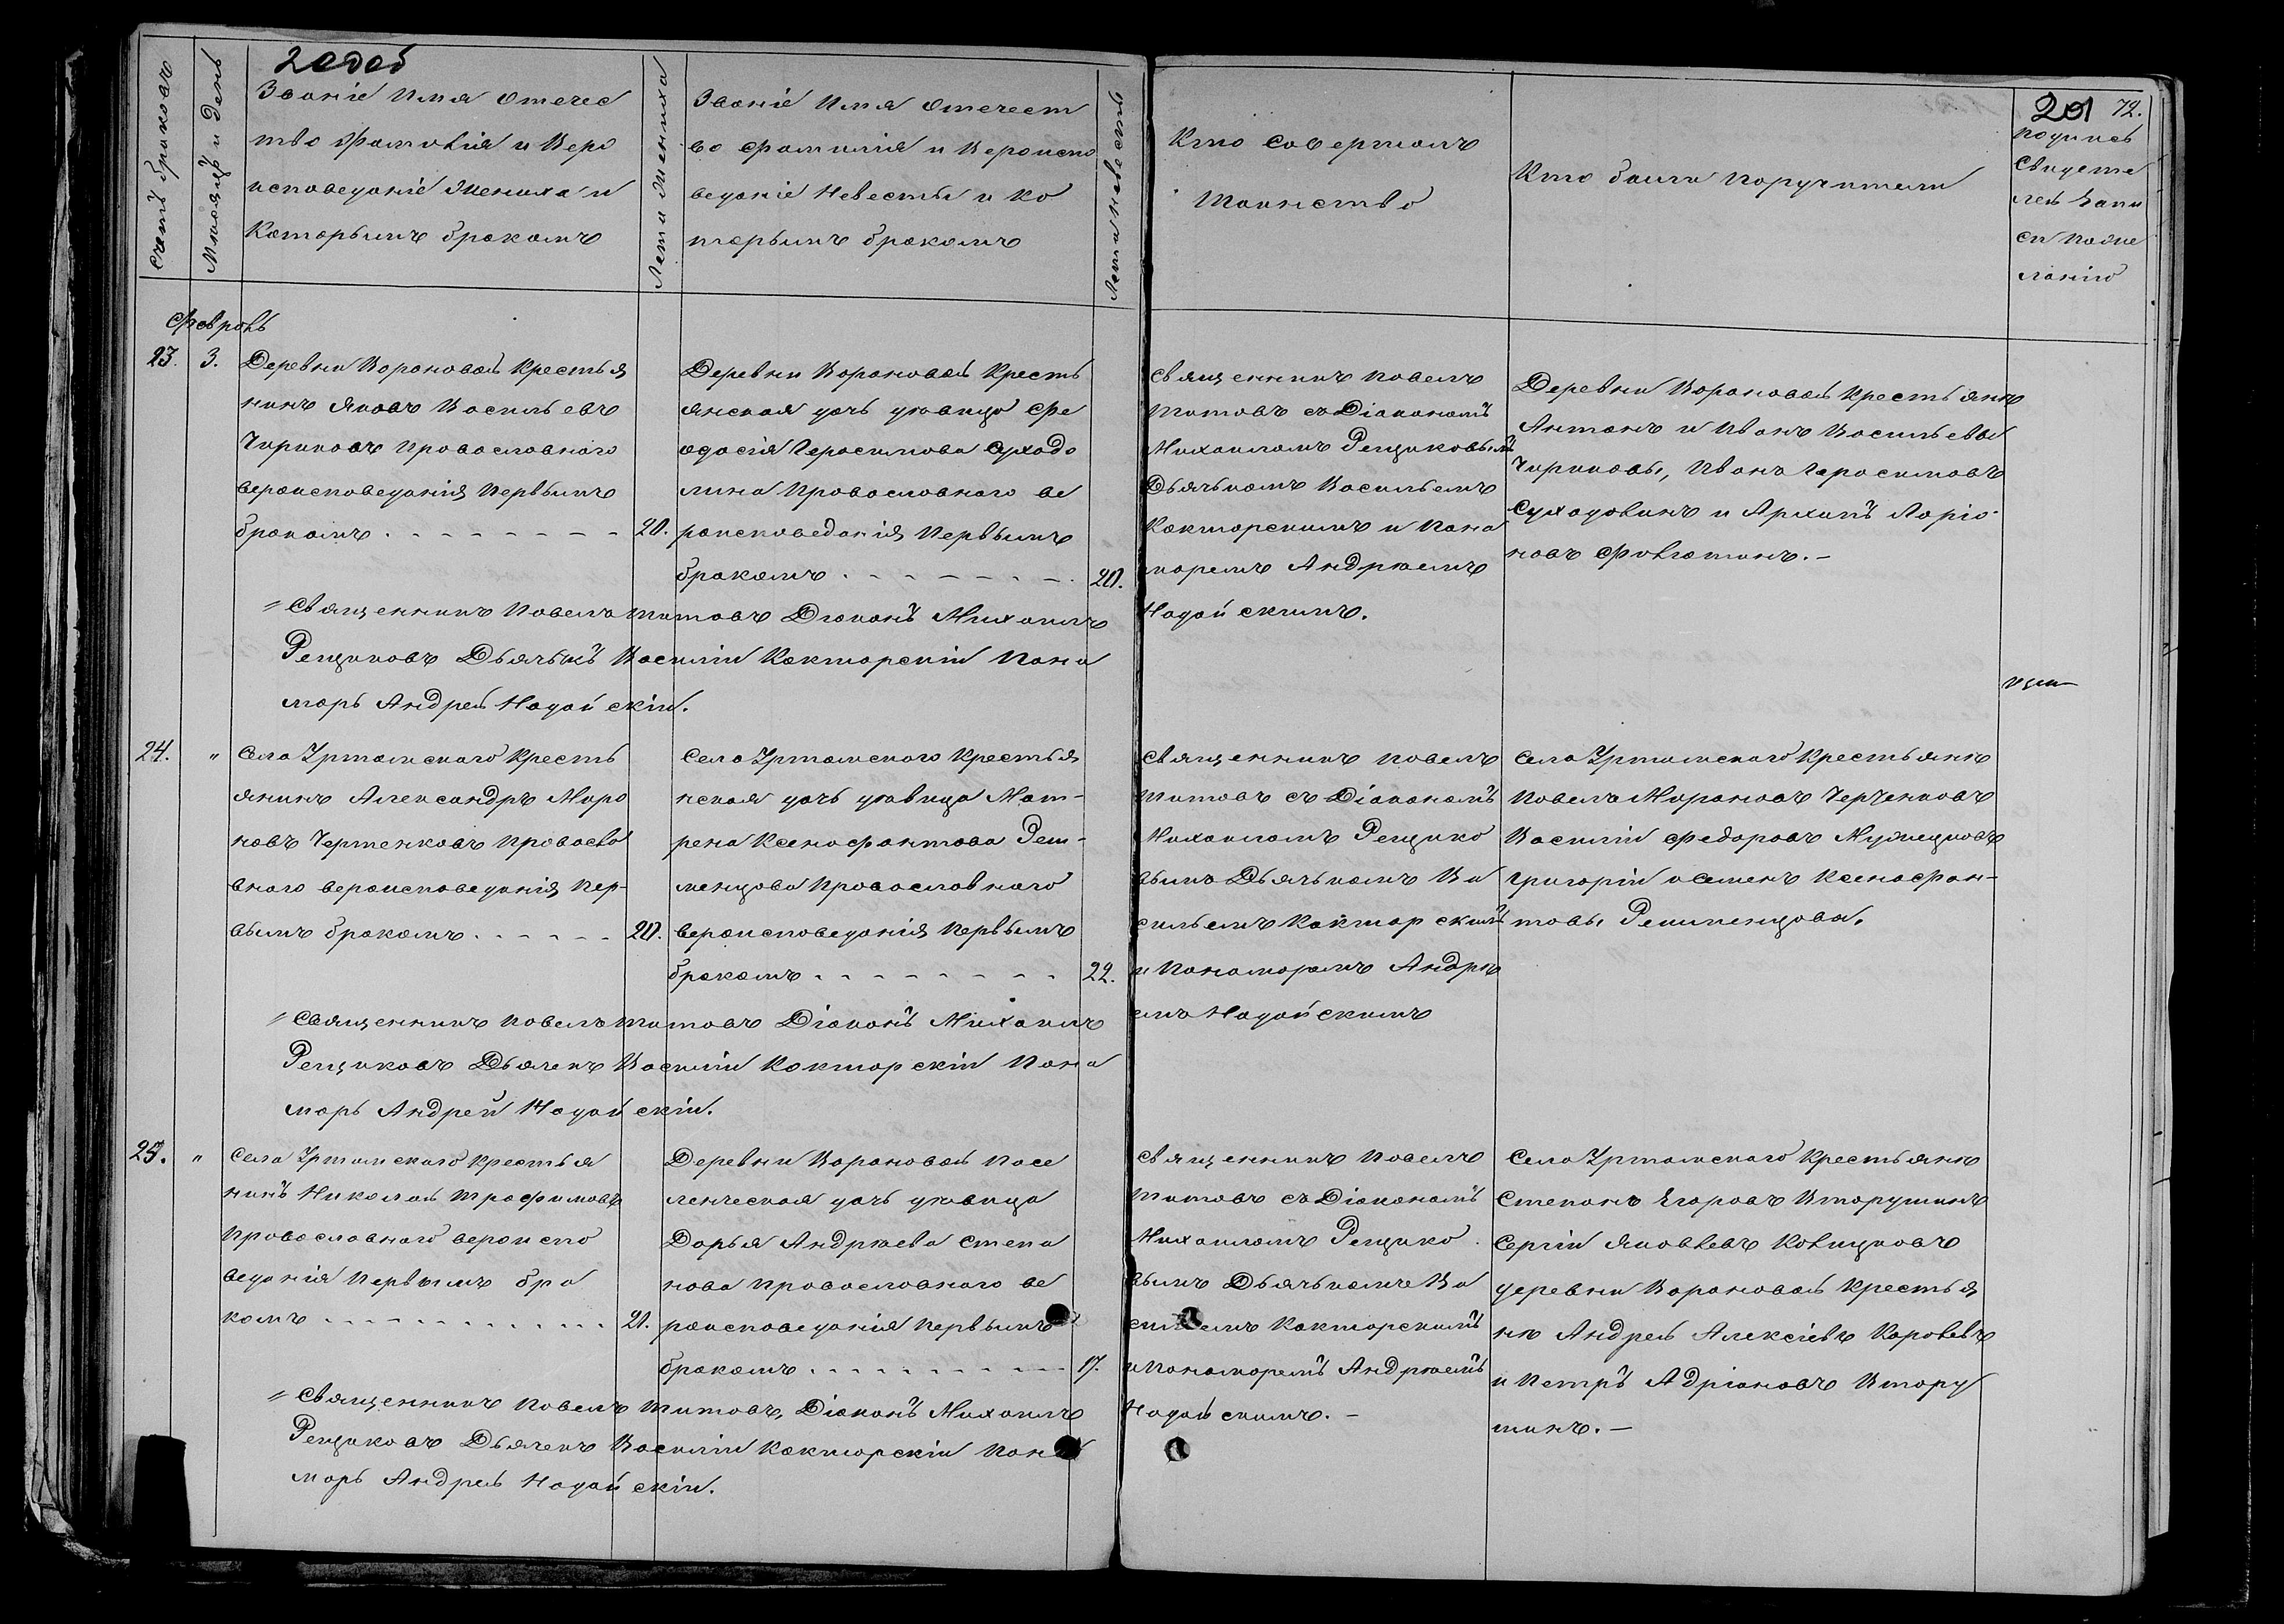 2одоб
счетъ браковъ
Мѣсяцъ и день
Званіе Имя отечес
тво фамилія и Веро
исповеданіе Жениха и
Каторымъ бракомъ
Лета жениха
Званіе Имя отечест
во фамилія и вероиспо
веданіе Невесты и ко
торымъ бракомъ
Лета невесты
Кто совершалъ
Таинство
Кто были поручители
201 72.
подпись
свидете
лей запи
си по же
ланію
Февраль
23. 3.
Деревни Вороновой Крестья
нинъ Яковъ Васильевъ
Чириковъ православнаго
вероисповеданія первымъ
бракомъ 20.
Деревни Вороновой Кресть
янская дочь девица Фе
одосія Герасимова Суходо
лина православнаго ве
роисповеданія первымъ
бракомъ 20.
священникъ Павелъ
Титовъ съ Діакономъ
Михаиломъ Рещиковымъ
Дьячькомъ Васильемъ
Какторскимъ и Поно
моремъ Андрѣемъ
Надойскимъ.
Деревни Вороновой крестьяне
Антонъ и Иванъ Васильевы
Чириковы, Иванъ Герасимовъ
Суходовинъ и Архипъ Ларіо
новъ
священникъ Павелъ Титовъ Діаконъ Михаилъ
Рещиковъ Дьячекъ Василій Какторскій Поно
морь Андрей Надойскій.
24. "
Села Уртамскаго Кресть
янинъ Александръ Миро
новъ Чертенковъ Правосла
внаго вероисповеданія пер-
вымъ бракомъ 20.
Села Уртамскаго Крестья
нская дочь девица Мат-
рена Ксенофонтова Реш-
менцова Православнаго
вероисповеданія первымъ
бракомъ 22.
священникъ Павелъ
Титовъ съ Діакономъ
Михаиломъ Рещико
вымъ Дьячькомъ Ва
сильемъ Какторскимъ
и Пономоремъ Андрѣ
емъ Надойскимъ
Села Уртамскаго крестьяне
Павелъ Мироновъ Черченковъ
Василій Федоровъ Мужецковъ
Григорій и Семенъ Ксенофон-
товы Решменцовы.
священникъ Павелъ Титовъ Діаконъ Михаилъ
Рещиковъ Дьячекъ Василій Какторскій Поно
морь Андрей Надойскій.
25. "
Села Уртамскаго крестья
нинъ Николай Трофимовъ
Православнаго вероиспо
веданія первымъ бра
комъ 21.
Деревни Вороновой посе
ленческая дочь девица
Дарья Андрѣева Степа
нова Православнаго ве
роисповеданія первымъ
бракомъ 17.
священникъ Павелъ
Титовъ съ Діакономъ
Михаиломъ Рещико
вымъ Дьячькомъ Ва
сильемъ Какторскимъ
и Пономоремъ Андрѣемъ
Надойскимъ.
Села Уртамскаго крестьяне
Степанъ Егоровъ Вторушинъ
Сергій Яковлевъ
деревни Вороновой крестья
не Андрей Алексіевъ Королевъ
и Петръ Адріановъ Втору
шинъ.
священникъ Павелъ Титовъ, Діаконъ Михаилъ
Рещиковъ Дьячекъ Василій Какторскій Поно
морь Андрей Надойскій.